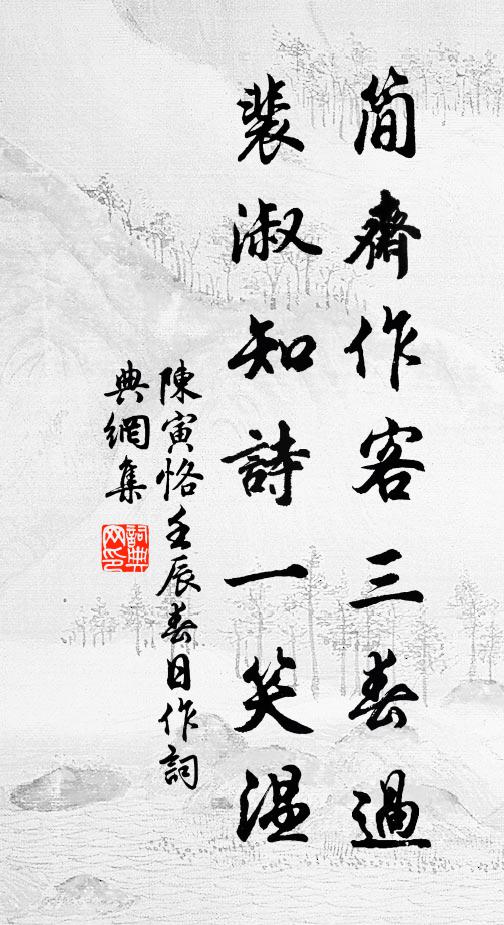 简齋作客三春過
裴淑知詩一笑温
陳寅恪壬辰春日作詞
典網集
詞典
网印